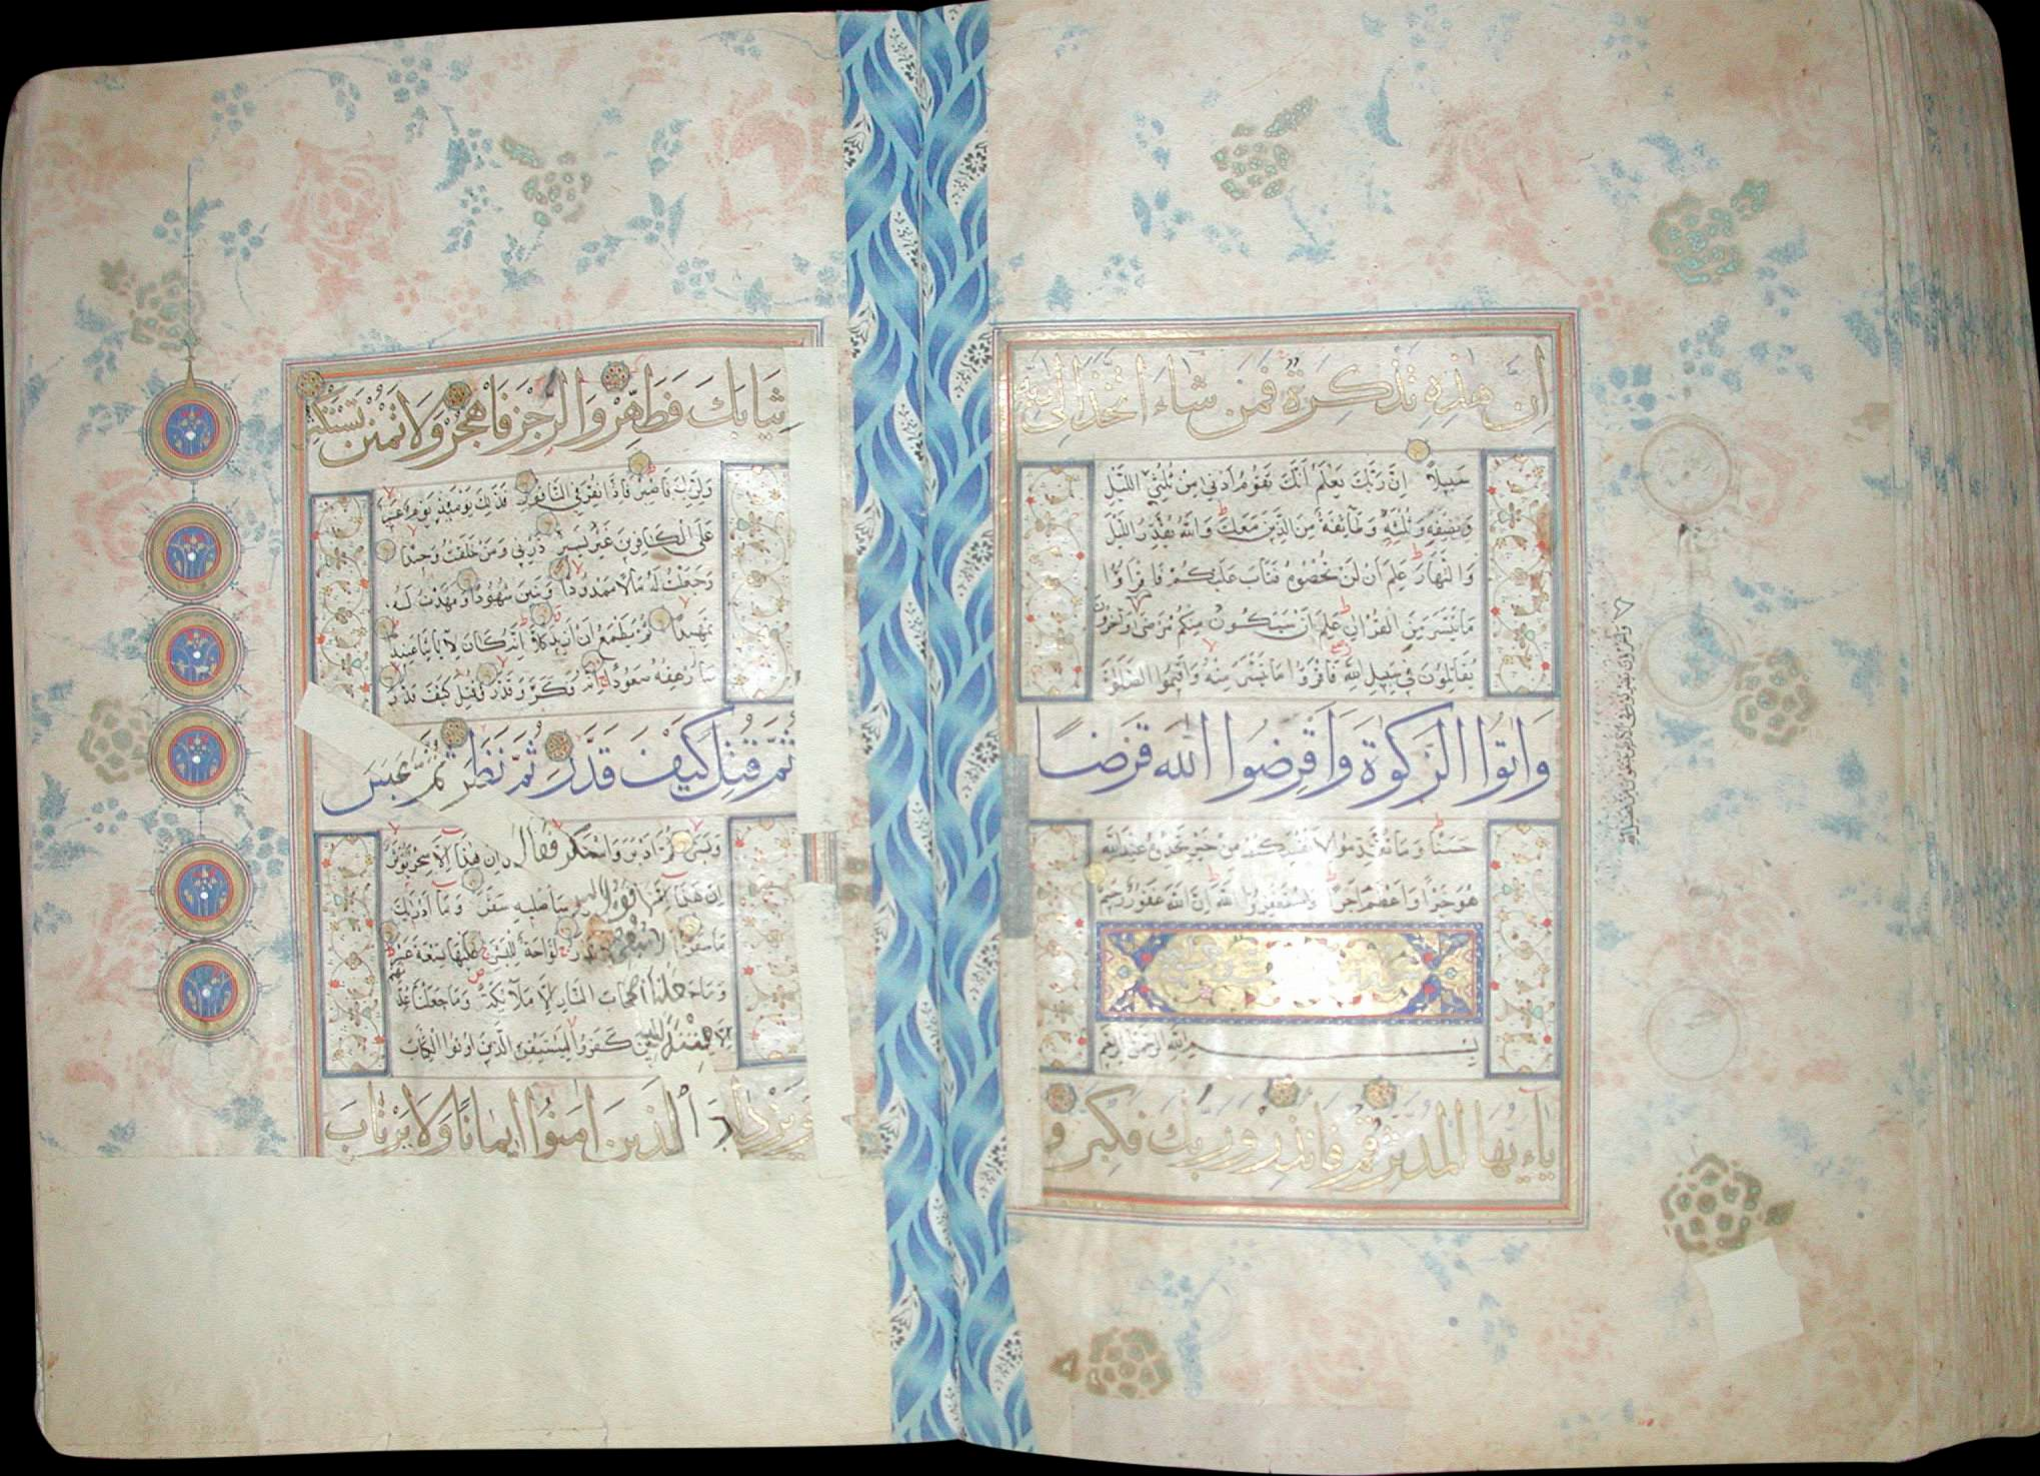 إن هذه تذكرة فمن شاء اتخذ إلى ربه
سبيلا إن ربك يعلم أنك تقوم أدنى من ثلثي الليل
ونصفه وثلثه وطائفة من الذين معك والله يقدر الليل
والنهار علم أن لن تحصوه فتاب عليكم فاقرأوا
ما تيسر من القرآن علم أن سيكون منكم مرضى وآخرون
يقاتلون في سبيل الله فاقرؤا ما تيسر منه وأقيموا الصلوة
وآتوا الزكوة وأقرضوا الله قرضا
حسنا وما تقدموا لأنفسكم من خير تجدوه عند الله
هو خيرا وأعظم أجرا واستغفروا الله إن الله غفور رحيم
بسم الله الرحمن الرحيم
يا أيها المدثر قم فأنذر وربك فكبر و
وآخرون يضربون في الأرض يبتغون من فضل الله
ثيابك فطهر والرجز فاهجر ولا تمنن تستكثر
ولربك فاصبر فإذا نقر في الناقور فذلك يومئذ يوم عسير
على الكافرين غير يسير ذرني ومن خلقت وحيدا
وجعلت له مالا ممدودا وبنين شهودا ومهدت له
تمهيدا ثم يطمع أن أزيد كلا إنه كان لآياتنا عنيدا
سأرهقه صعودا إنه فكر وقدر فقتل كيف قدر
ثم قتل كيف قدر ثم نظر ثم عبس
وبسر ثم أدبر واستكبر فقال إن هذا إلا سحر يؤثر
إن هذا إلا قول البشر سأصليه سقر وما أدراك
ما سقر لا تبقي ولا تذر لواحة للبشر عليها تسعة عشر
وما جعلنا أصحاب النار إلا ملائكة وما جعلنا عدتهم
إلا فتنة للذين كفروا ليستيقن الذين أوتوا الكتاب
ويزداد الذين آمنوا إيمانا ولا يرتاب